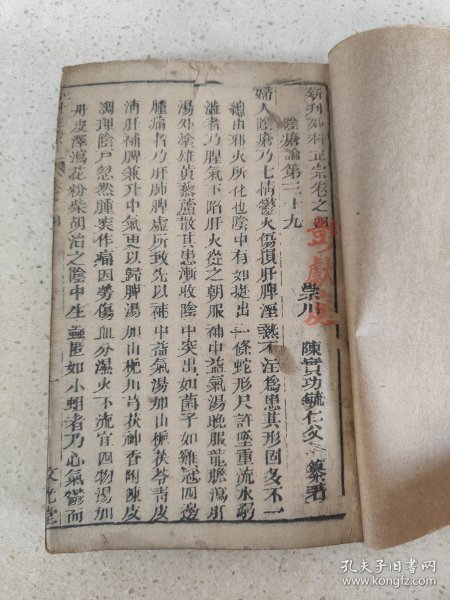 新刊外科正宗卷之四
崇川 陳實功毓仁父 纂著
陰瘡論第三十九
婦人陰瘡乃七情鬱火傷損肝脾溼熱下注爲患其形固多不一
總由邪火所化也陰中有如挺出一條蛇形尺許墜重流水溺
澁者乃腥氣下陷肝火從之朝服補中益氣湯晚服龍膽瀉肝
湯外塗雄黃藜蘆散其患漸收陰中突出如菌子如雞冠四邊
腫痛者乃肝肺脾虛所致先以補中益氣湯加山梔茯苓靑皮
淸肝補脾兼升中氣更以歸脾湯加山梔川芎茯神香附陳皮
調理陰戶忽然腫突作痛因勞傷血分溼火下流宜四物湯加
丹皮澤瀉花粉柴胡治之陰中生䘌匿如小蛆者乃心氣鬱而
文光堂
孔夫子旧书网
www.kongfz.com